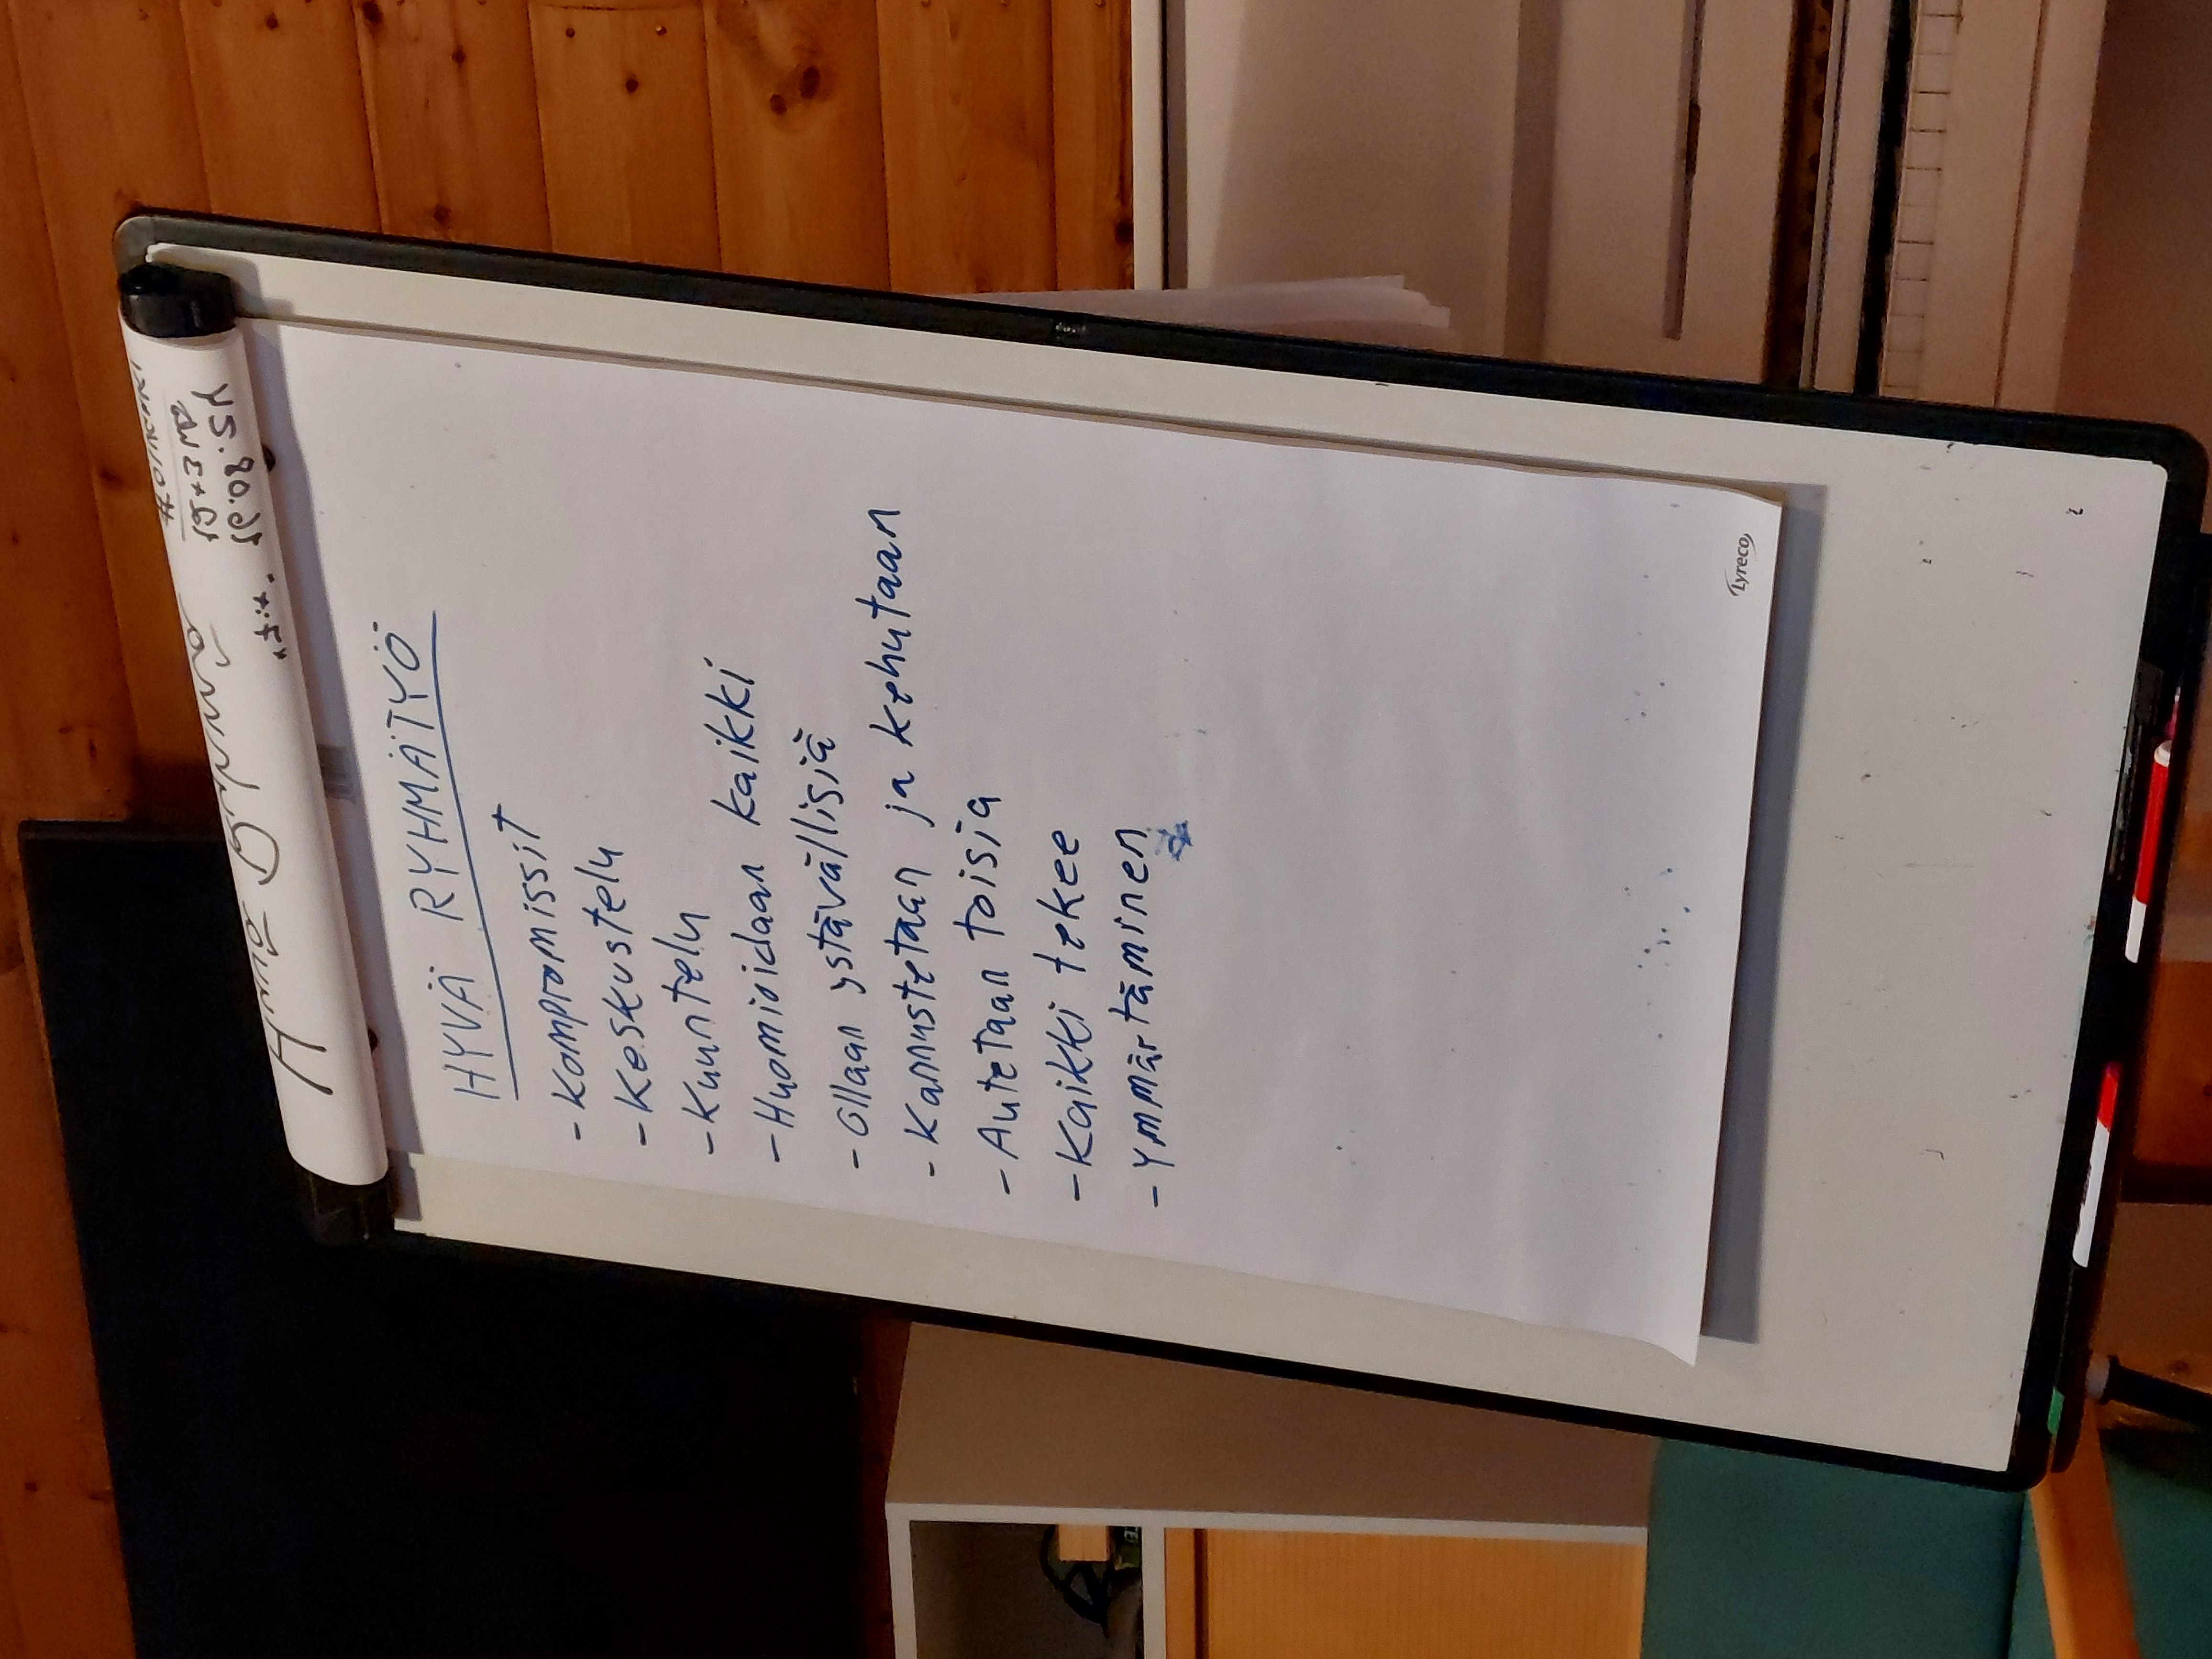 HYVÄ RYHMÄTYÖ
- Kompromissit
- Keskustelu
- Kuuntelu
- Huomioidaan kaikki
- Ollaan ystävällisiä
- Kannustetaan ja kehutaan
- Autetaan toisia
- Kaikki tekee
- Ymmärtäminen
Lyreco